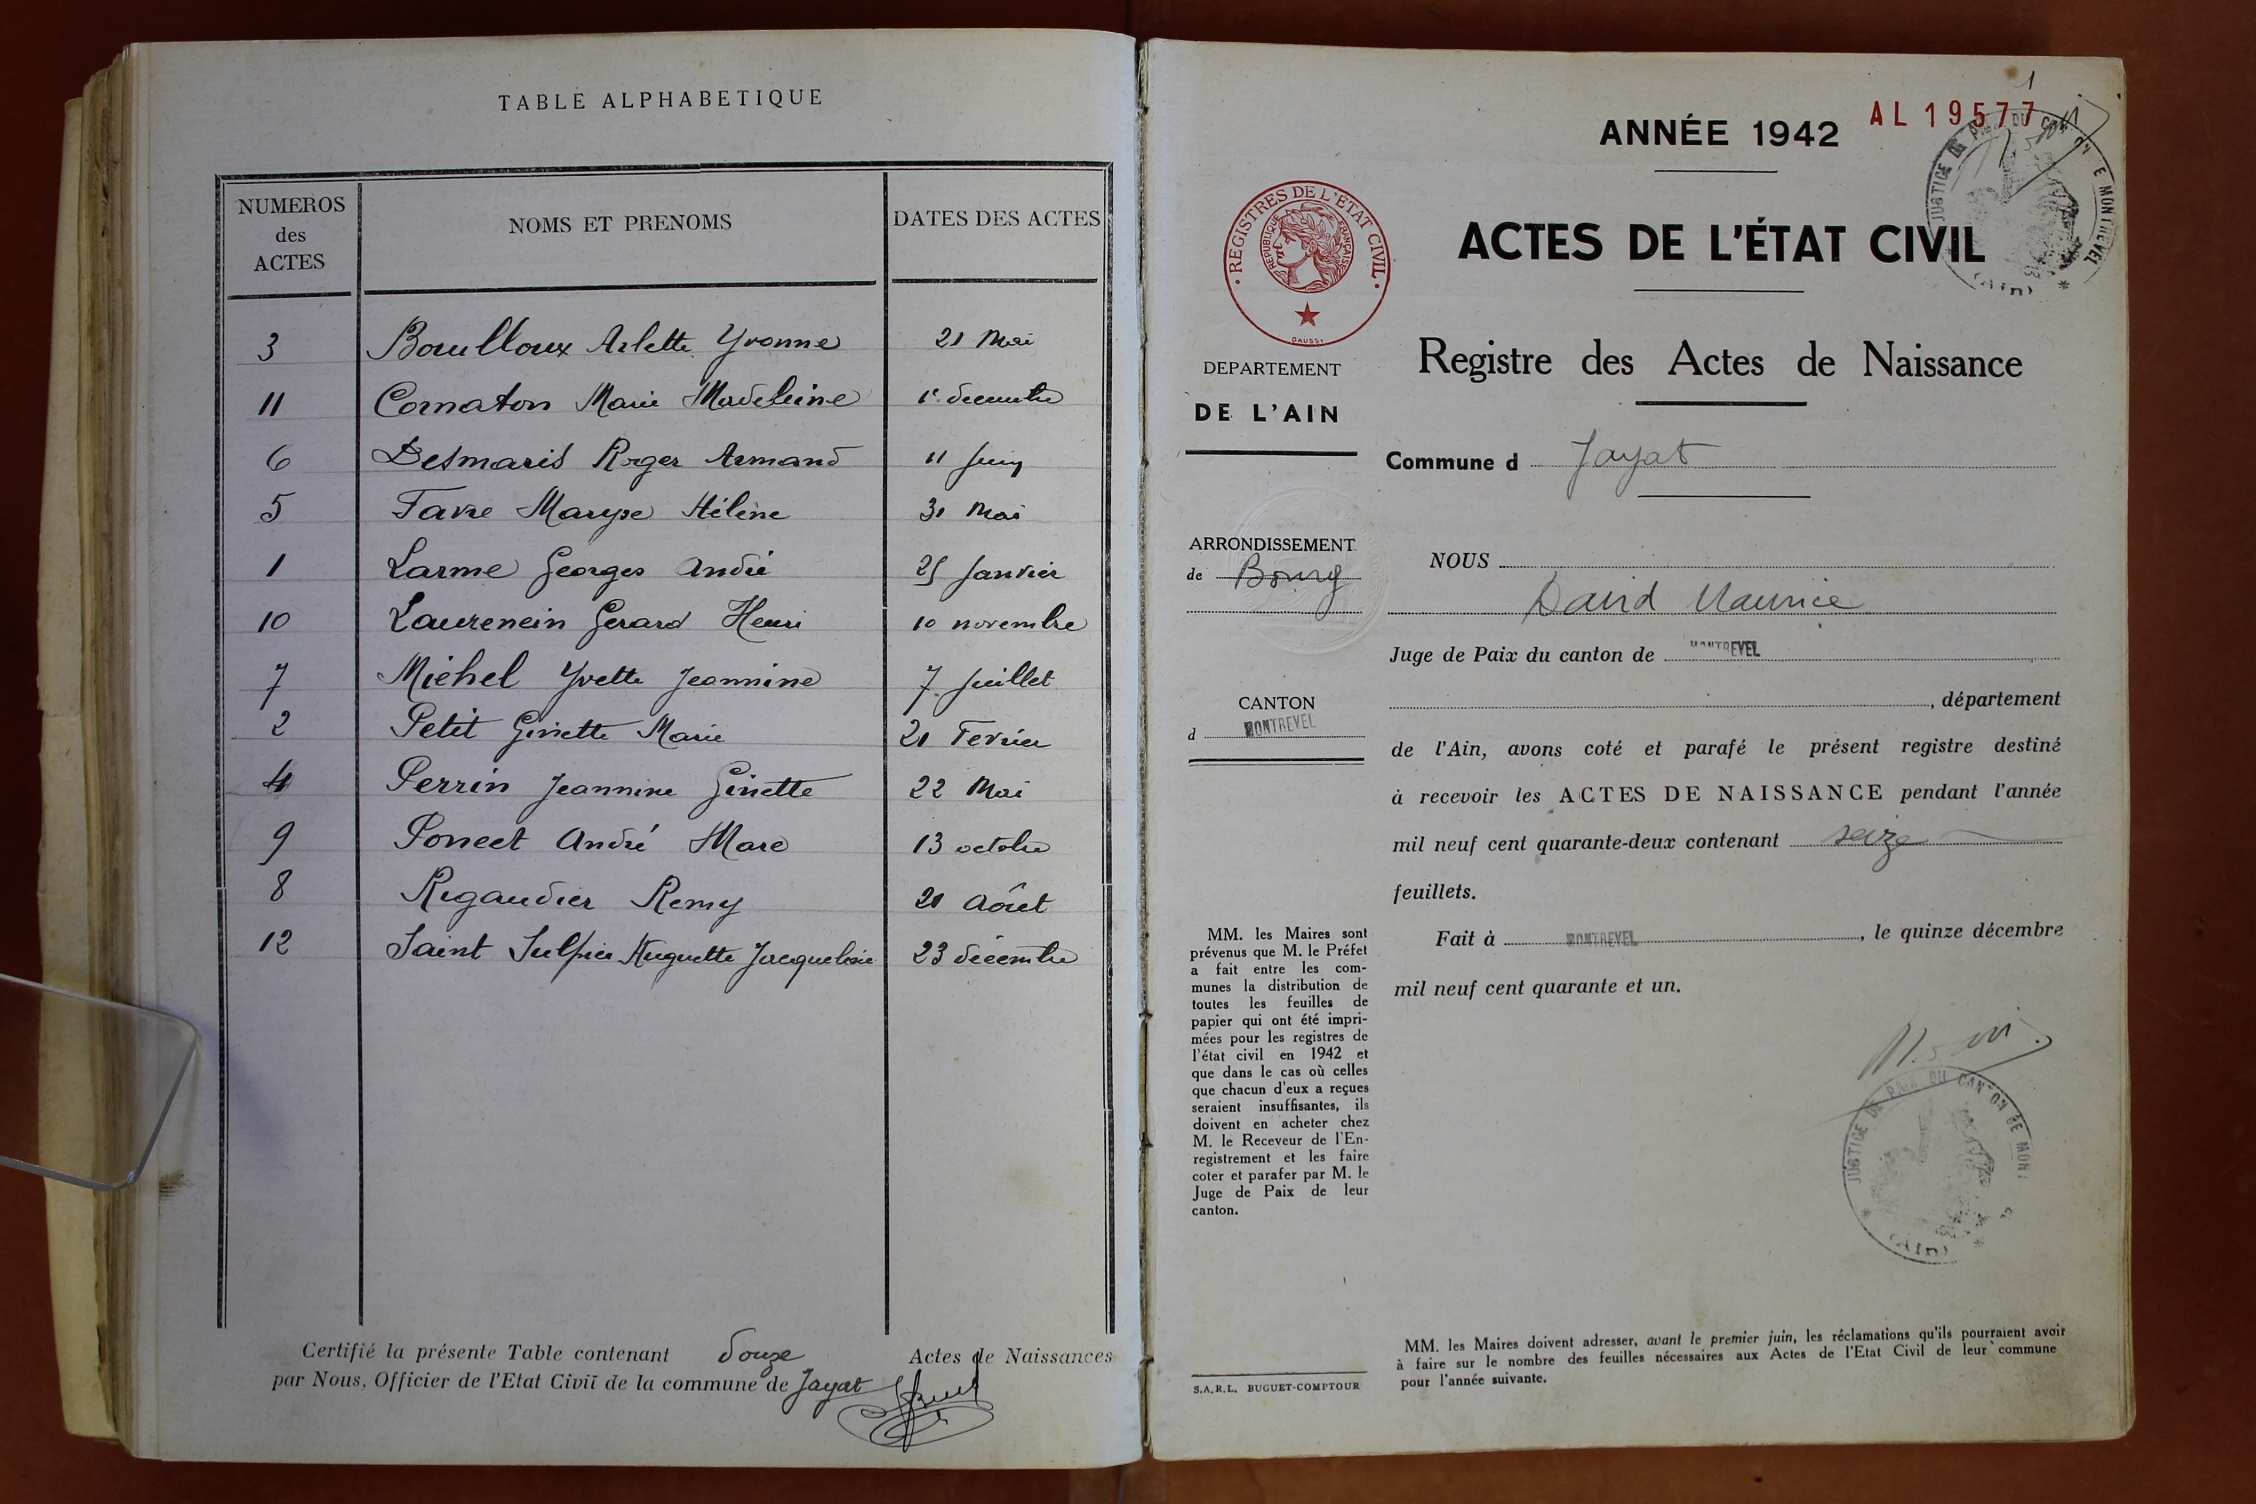 TABLE ALPHABETIQUE
NUMEROS
des
ACTES
NOMS ET PRENOMS
DATES DES ACTES
3 Bouilloux Arlette Yvonne 21 Mai
11 Cornaton Marie Madeleine 1er decembre
6 Desmaris Roger Armand 11 Juin
5 Favre Maryse Hélène 31 Mai
1 Larme Georges André 25 Janvier
10 Laurencin Gerard Henri 10 novembre
7 Michel Yvette Jeannine 7 Juillet
2 Petit Ginette Marie 21 Fevrier
4 Perrin Jeannine Ginette 22 Mai
9 Poncet André Marc 13 octobre
8 Rigaudier Remy 21 Août
12 Saint Sulpice Huguette Jacqueline 23 décembre
Certifié la présente Table contenant douze Actes de Naissances
par Nous, Officier de l'Etat Civil de la commune de Jayat
1
ANNÉE 1942
AL 19577
JUSTICE DE PAIX DU CANTON DE MONTREVEL
(Ain)
REGISTRES DE L'ÉTAT CIVIL
RÉPUBLIQUE FRANÇAISE
DAUSSI
ACTES DE L'ÉTAT CIVIL
Registre des Actes de Naissance
DEPARTEMENT
DE L'AIN
Commune d Jayat
ARRONDISSEMENT
de Bourg
CANTON
d MONTREVEL
NOUS
David Maurice
Juge de Paix du canton de MONTREVEL
, département
de l'Ain, avons coté et parafé le présent registre destiné
à recevoir les ACTES DE NAISSANCE pendant l'année
mil neuf cent quarante-deux contenant seize
feuillets.
Fait à MONTREVEL, le quinze décembre
mil neuf cent quarante et un.
MM. les Maires sont
prévenus que M. le Préfet
a fait entre les com-
munes la distribution de
toutes les feuilles de
papier qui ont été impri-
mées pour les registres de
l'état civil en 1942 et
que dans le cas où celles
que chacun d'eux a reçues
seraient insuffisantes, ils
doivent en acheter chez
M. le Receveur de l'En-
registrement et les faire
coter et parafer par M. le
Juge de Paix de leur
canton.
JUSTICE DE PAIX DU CANTON DE MONT
(Ain)
S.A.R.L. BUGUET-COMPTOUR
MM. les Maires doivent adresser, avant le premier juin, les réclamations qu'ils pourraient avoir
à faire sur le nombre des feuilles nécessaires aux Actes de l'Etat Civil de leur commune
pour l'année suivante.